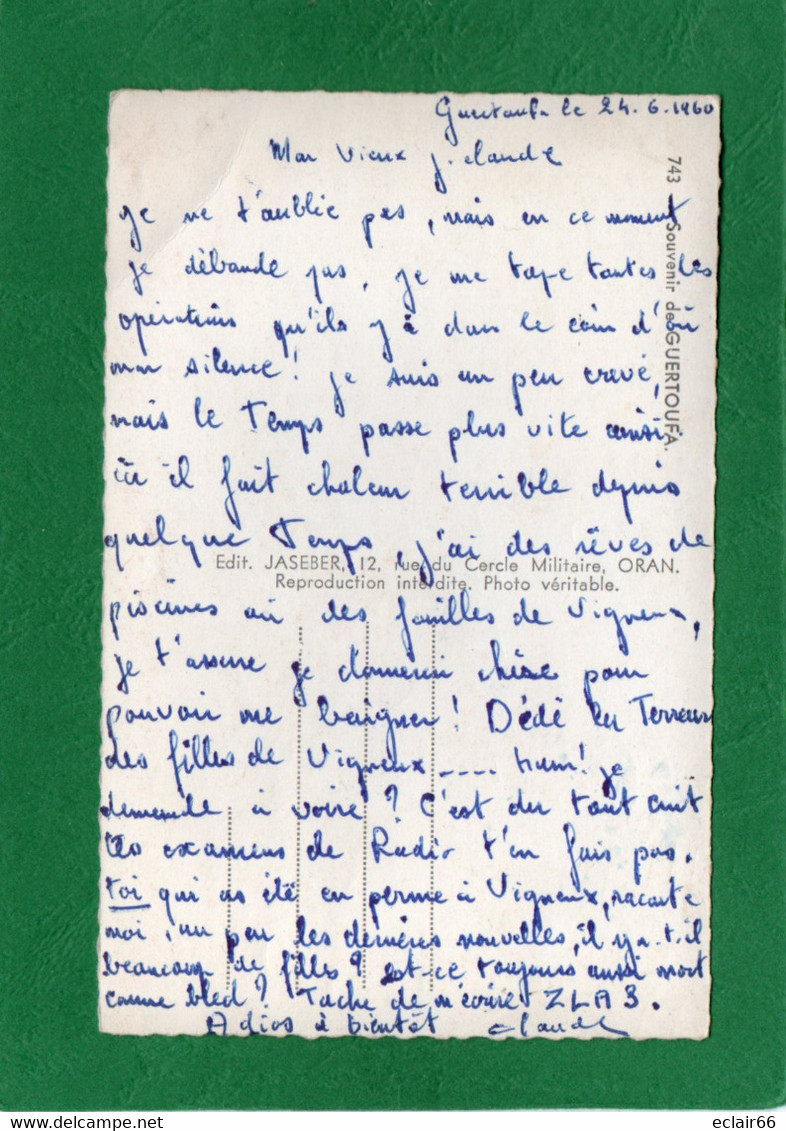 Guertoufa le 24.6.1960
Mon Vieux J.Claude
743 Souvenir de GUERTOUFA.
je ne t'oublie pas, mais en ce moment
je débande pas, je me tape toutes les
opérations qu'ils y a dans le coin d'où
mon silence! je suis un peu crevé,
mais le Temps passe plus vite ainsi,
ici il fait chaleur terrible depuis
quelque Temps, j'ai des rêves de
Edit. JASEBER, 12, rue du Cercle Militaire, ORAN.
Reproduction interdite. Photo véritable.
piscines ou des fouilles de Vigneux,
je t'assure je donnerai chère pour
pouvoir me baigner! Dédé la Terreur
des filles de Vigneux .... hum! je
demande à voire? C'est du tout cuit
tes examens de Radio t'en fais pas.
toi qui as été en perme à Vigneux, raconte
moi un peu les dernières nouvelles, il y a.t.il
beaucoup de filles? est-ce toujours aussi mort
comme bled? Tache de m'écrire ZLA3.
Adios à bientôt Claude
eclair66